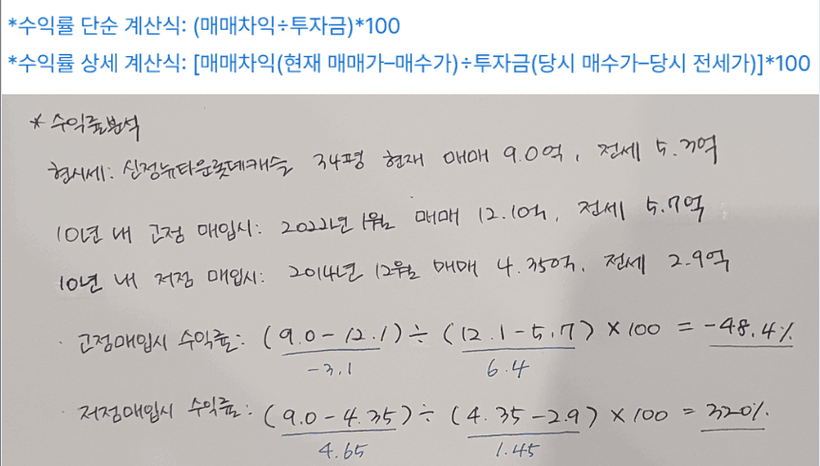 *수익률 단순 계산식: (매매차익÷투자금)*100
*수익률 상세 계산식: [매매차익(현재 매매가–매수가)÷투자금(당시 매수가–당시 전세가)]*100
* 수익률분석
현시세: 신정뉴타운롯데캐슬 34평 현재 매매 9.0억, 전세 5.7억
10년 내 고점 매입시: 2022년 1월 매매 12.1억, 전세 5.7억
10년 내 저점 매입시: 2014년 12월 매매 4.35억, 전세 2.9억
· 고점매입시 수익률: (9.0-12.1) ÷ (12.1-5.7) × 100 = -48.4%
-3.1 6.4
· 저점매입시 수익률: (9.0-4.35) ÷ (4.35-2.9) × 100 = 320%
4.65 1.45